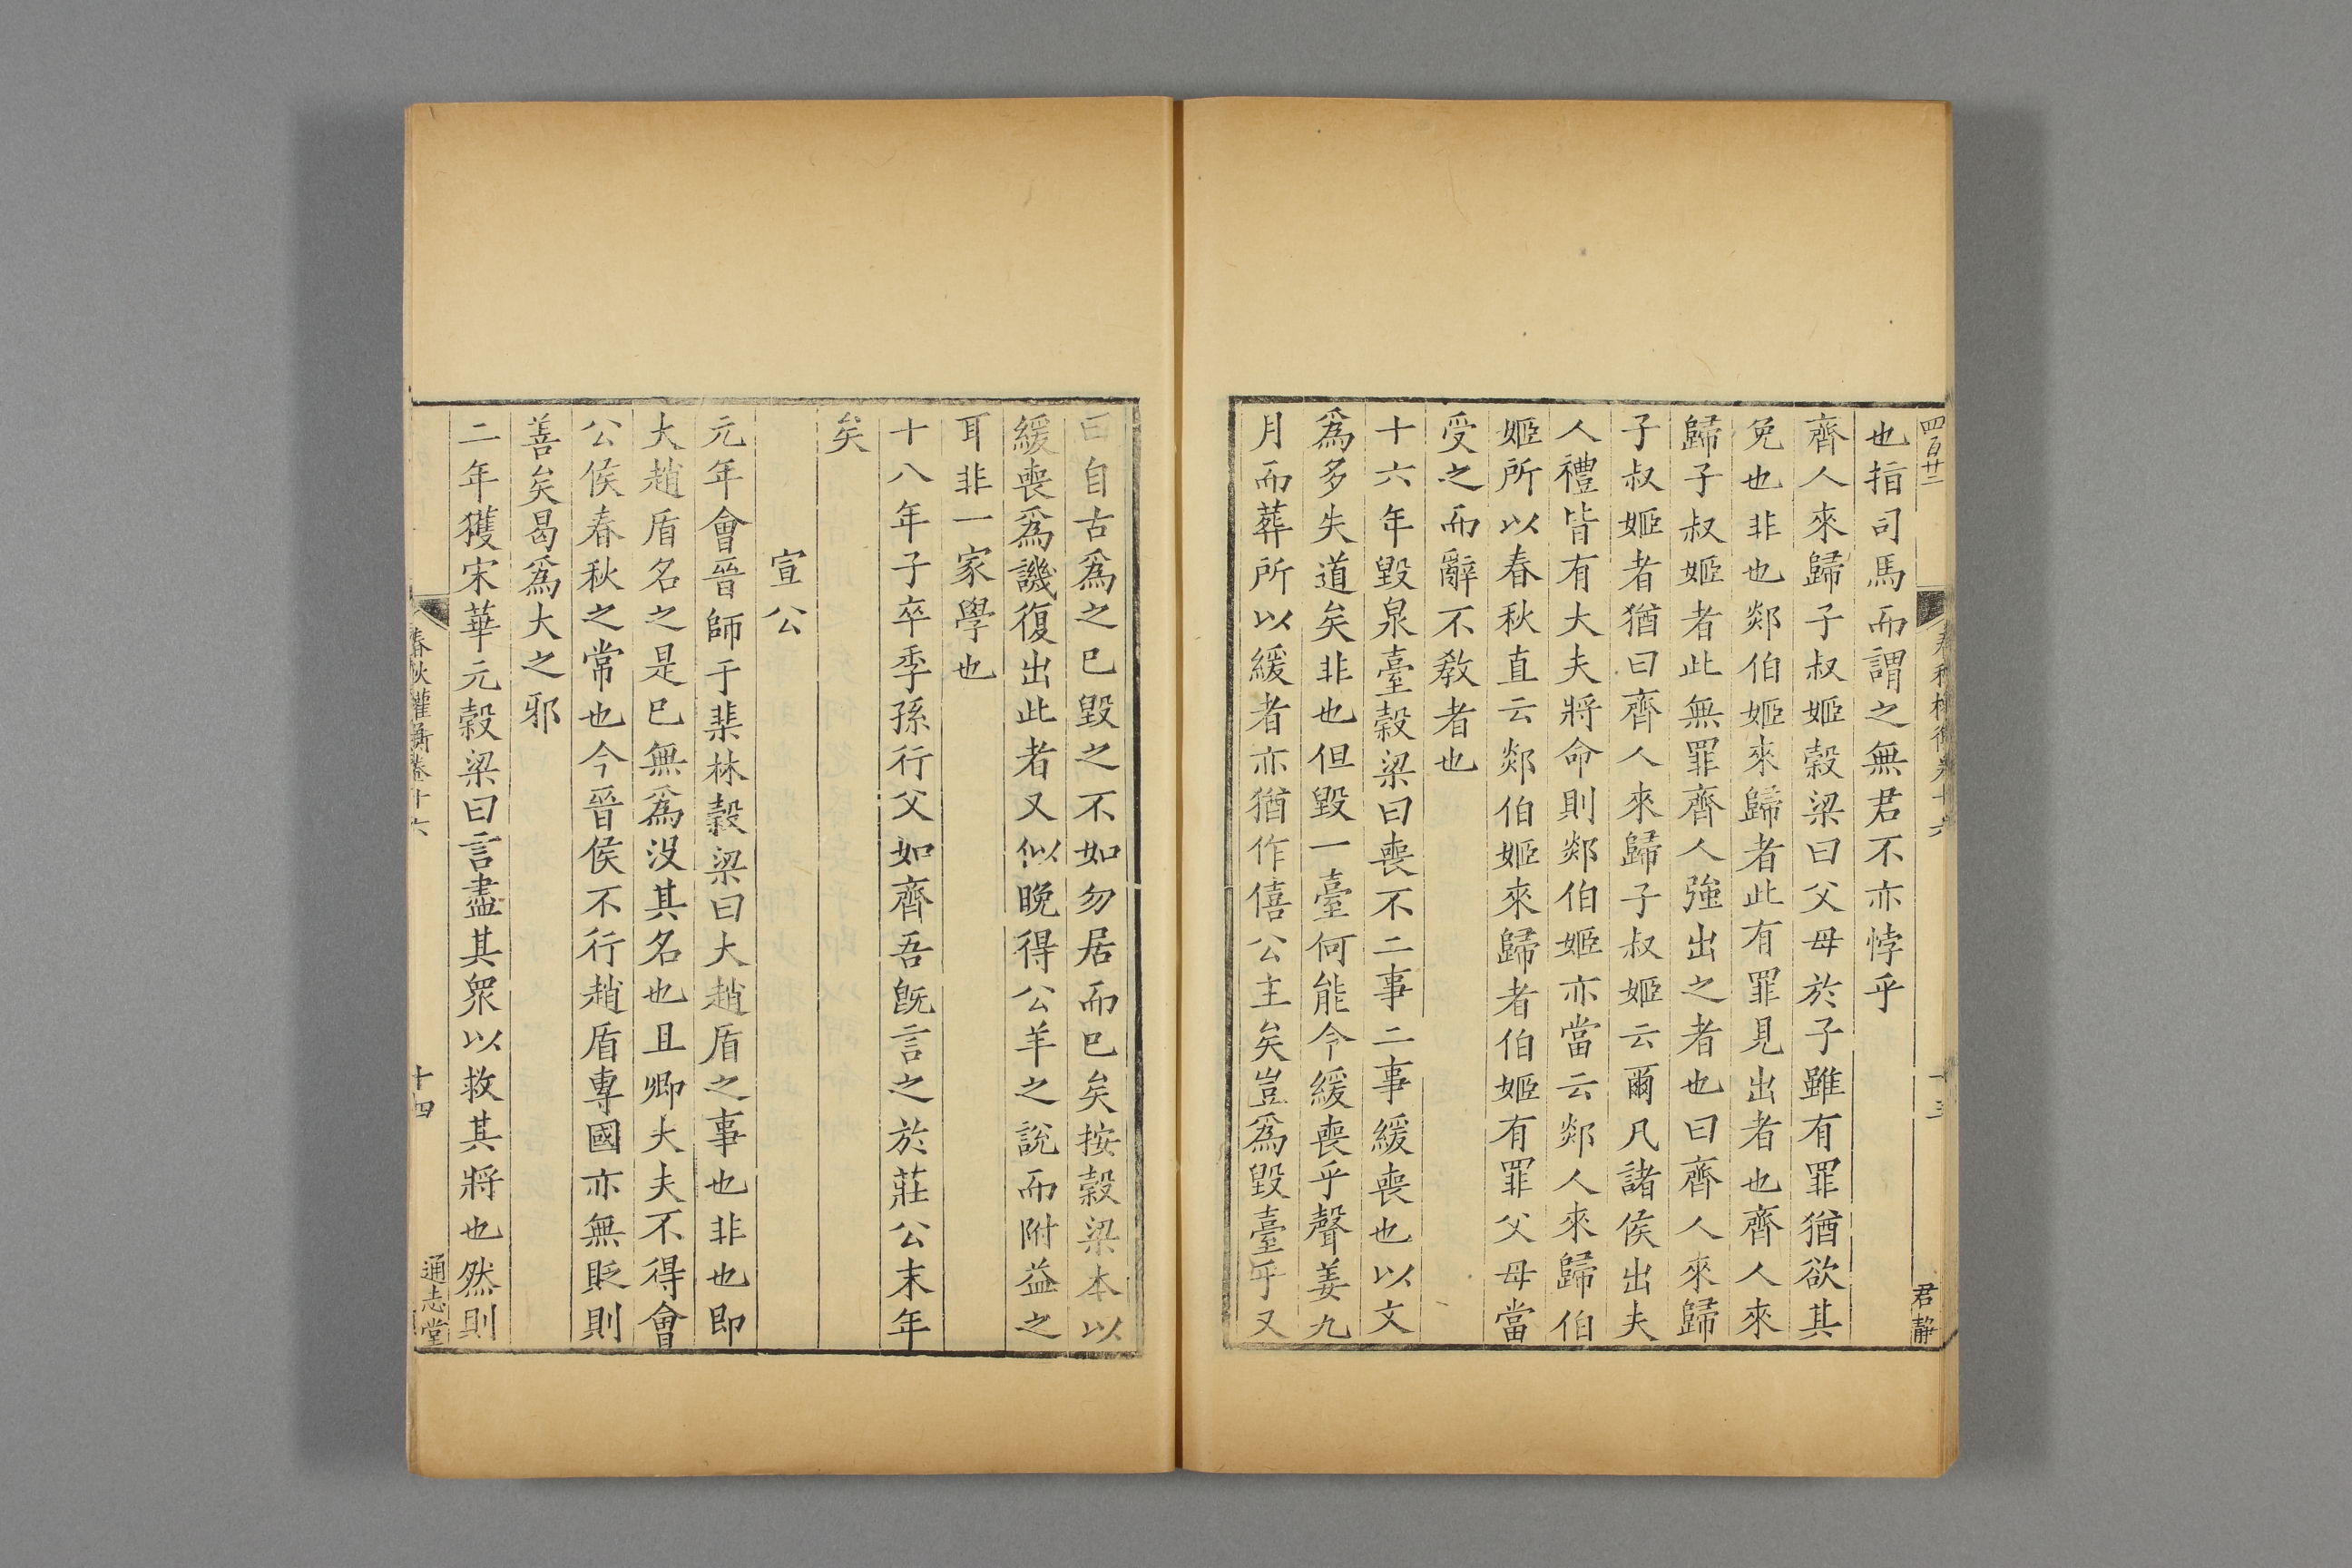 四百廿三
君靜
也指司馬而謂之無君不亦悖乎
齊人來歸子叔姬穀梁曰父母於子雖有罪猶欲其
免也非也郯伯姬來歸者此有罪見出者也齊人來
歸子叔姬者此無罪齊人強出之者也曰齊人來歸
子叔姬者猶曰齊人來歸子叔姬云爾凡諸侯出夫
人禮皆有大夫將命則郯伯姬亦當云郯人來歸伯
姬所以春秋直云郯伯姬來歸者伯姬有罪父母當
受之而辭不敎者也
十六年毀泉臺穀梁曰喪不二事二事緩喪也以文
爲多失道矣非也但毀一臺何能令緩喪乎聲姜九
月而葬所以緩者亦猶作僖公主矣豈爲毀臺乎又
曰自古爲之已毀之不如勿居而已矣按穀梁本以
緩喪爲譏復出此者又似晚得公羊之說而附益之
耳非一家學也
十八年子卒季孫行父如齊吾旣言之於莊公末年
矣
宣公
元年會晉師于棐林穀梁曰大趙盾之事也非也即
大趙盾名之是已無爲沒其名也且卿大夫不得會
公侯春秋之常也今晉侯不行趙盾專國亦無貶則
善矣曷爲大之邪
二年獲宋華元穀梁曰言盡其衆以救其將也然則
春秋權衡卷十六
十四
通志堂